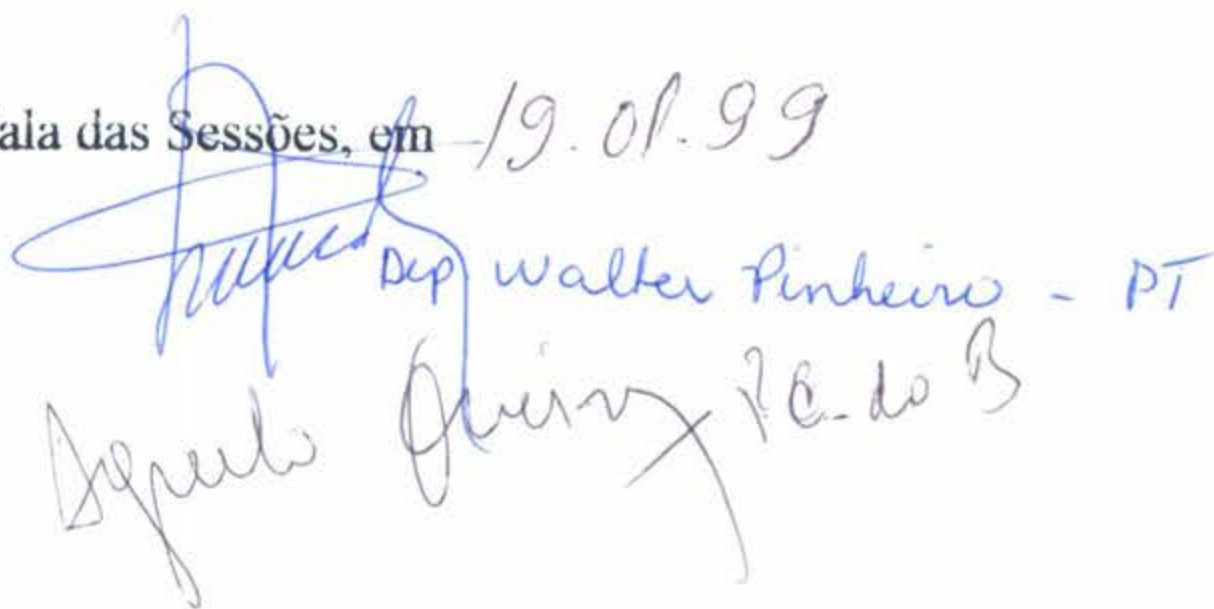 ala das Sessões, em 19.01.99
Dep Walter Pinheiro - PT
Agnelo Queiroz PC do B